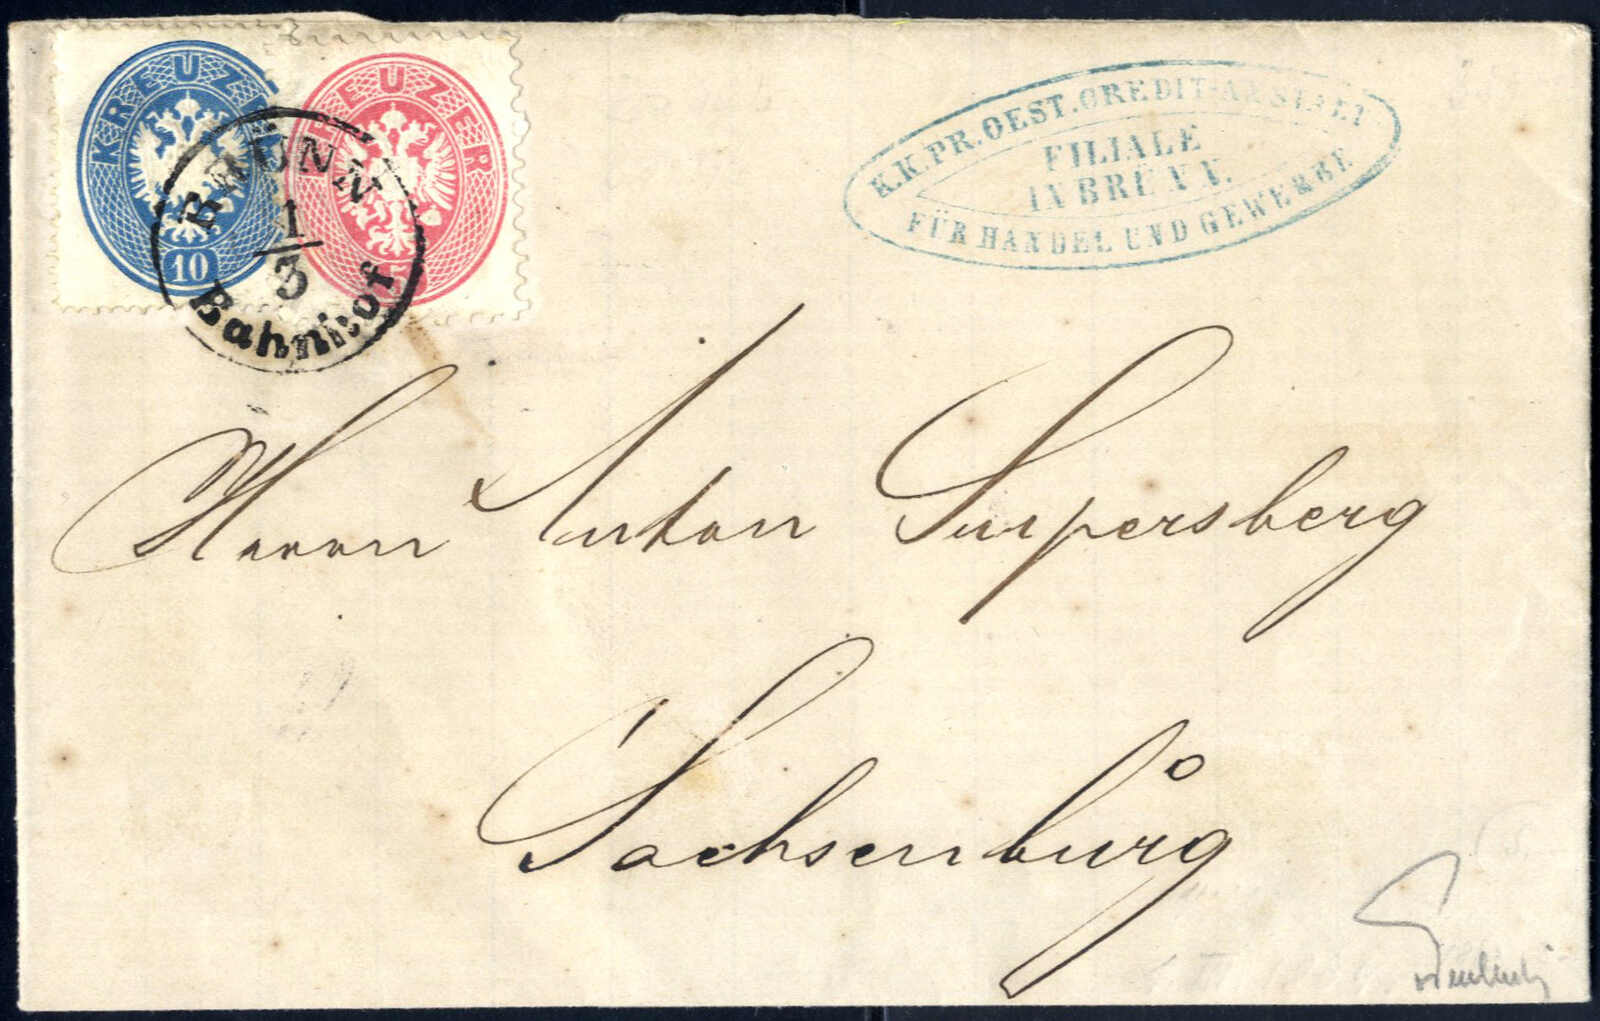 KREUZER
10
KREUZER
5
BRÜNN
1
3
Bahnhof
K.K.PR.OEST.CREDIT-ANSTALT
FILIALE
IN BRÜNN.
FÜR HANDEL UND GEWERBE
Herrn Anton Surpersberg
Sachsenburg